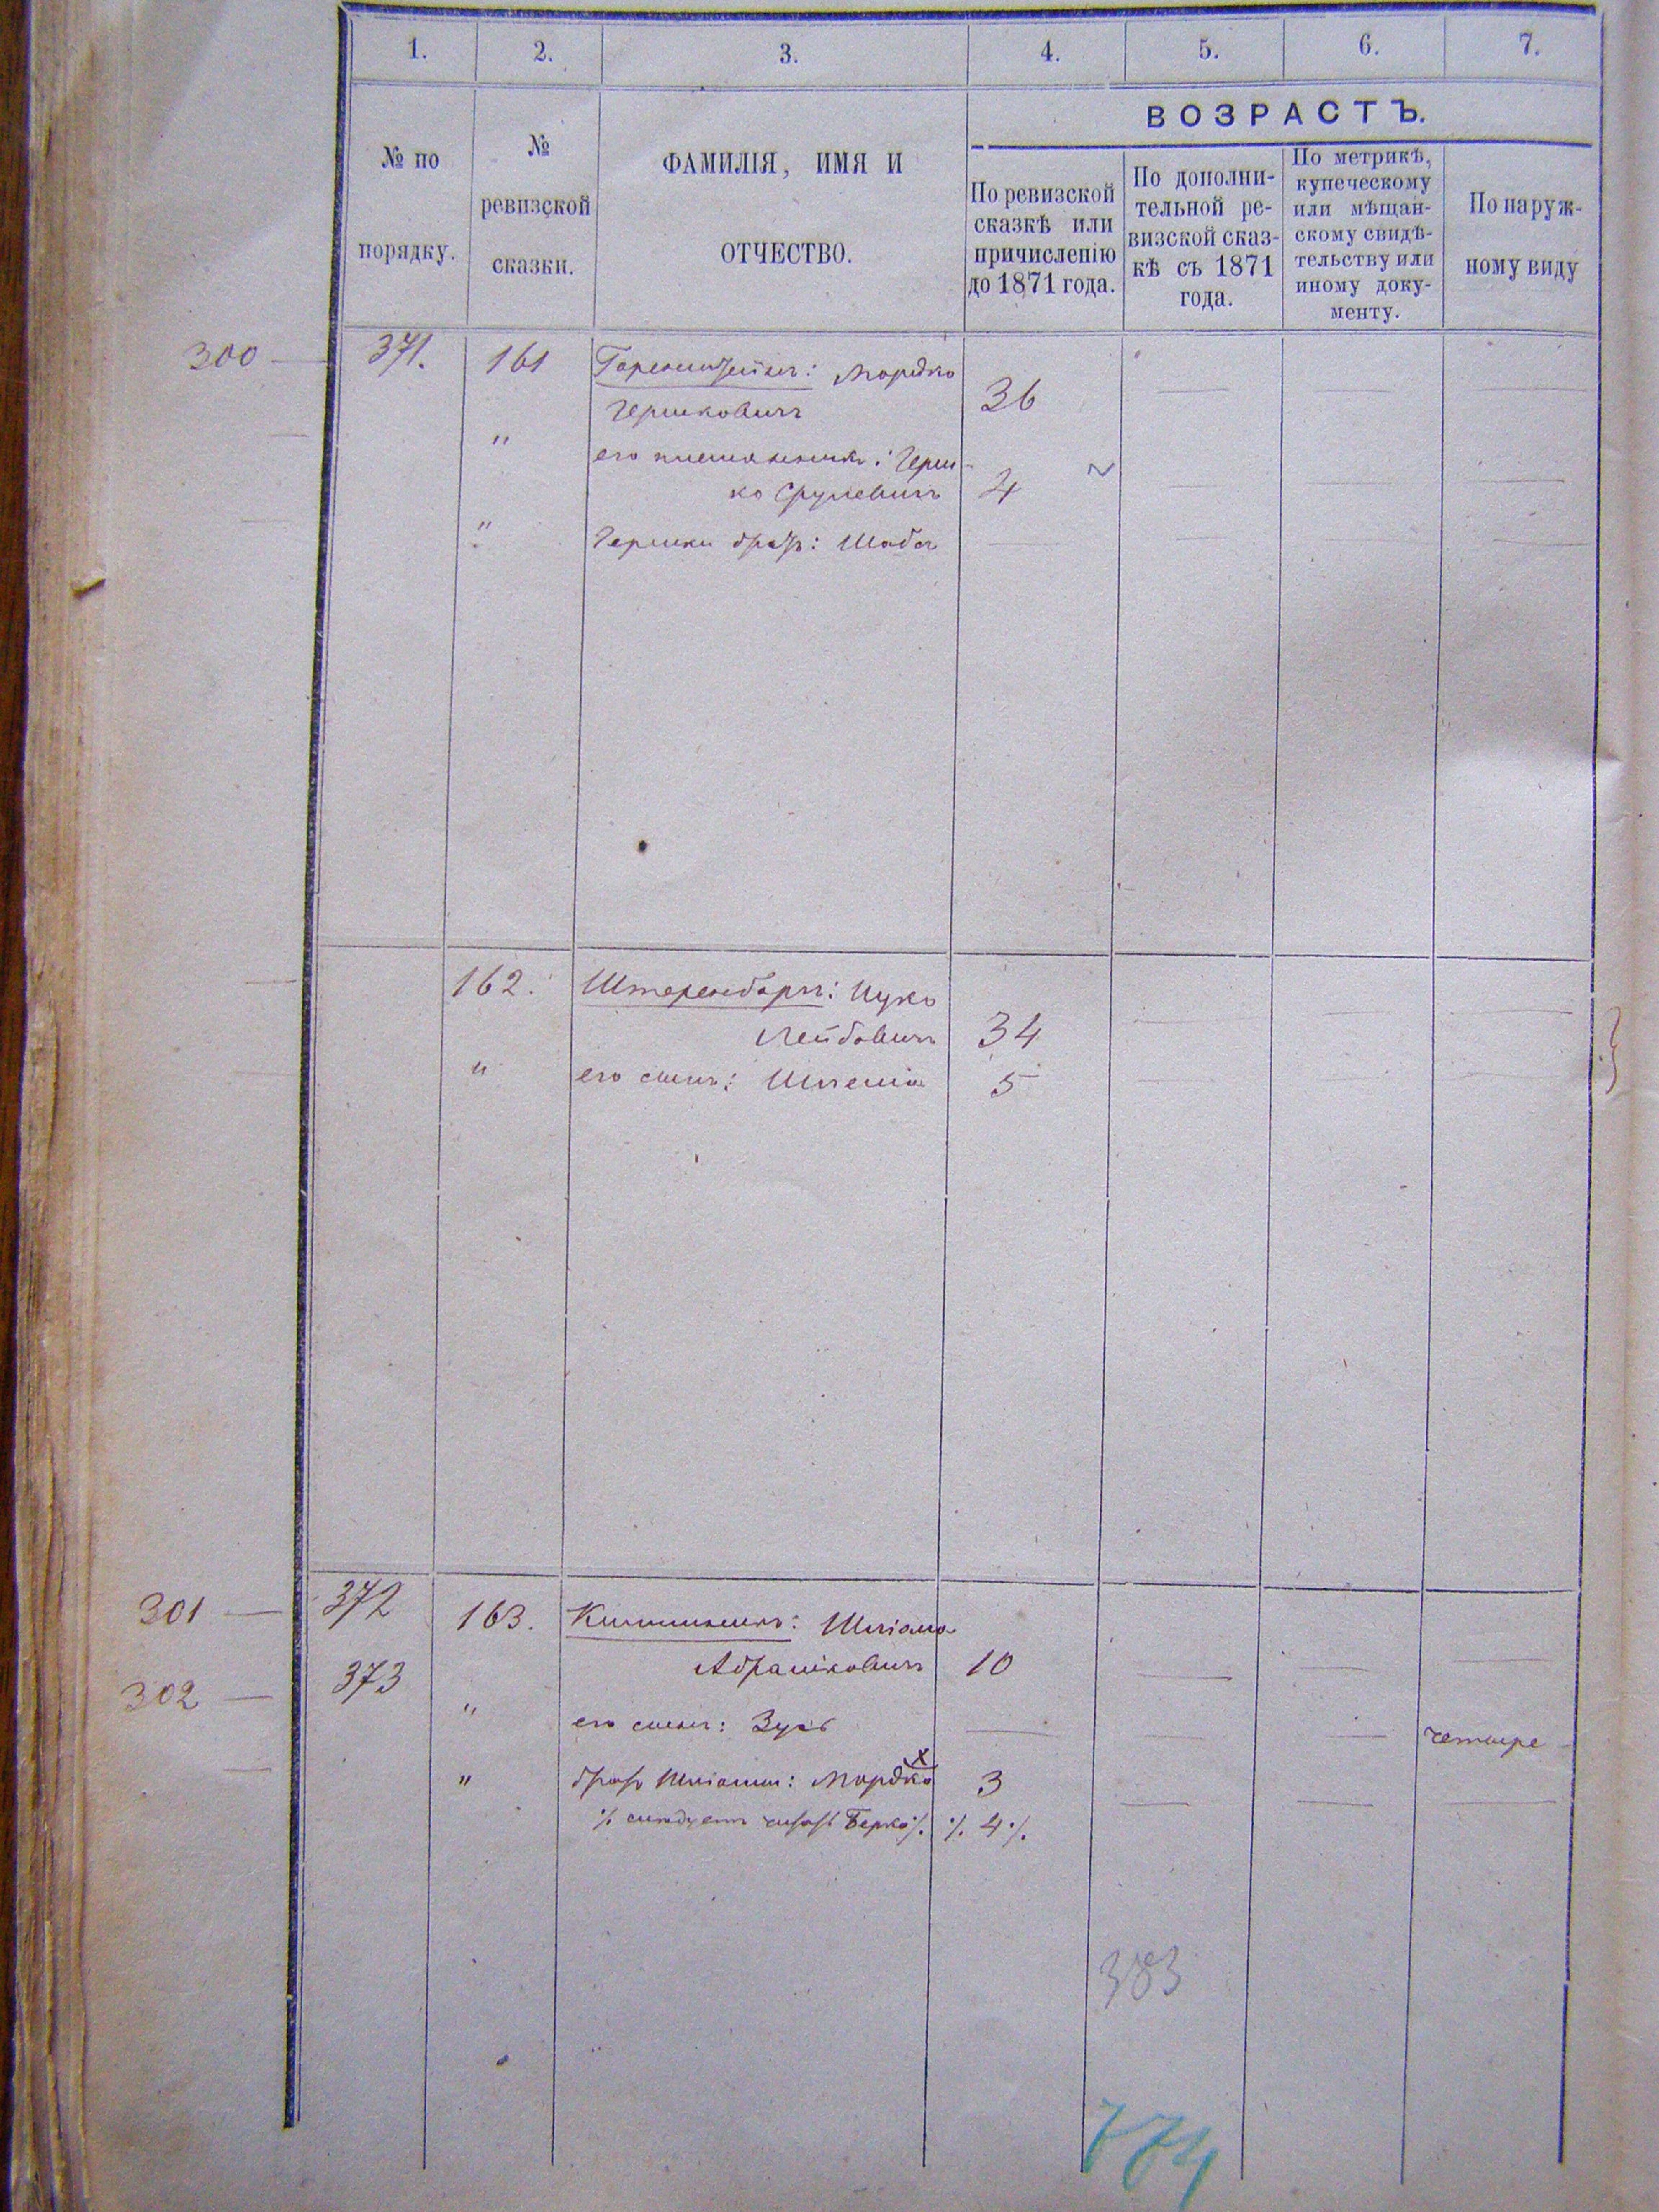 1. 2. 3. 4. 5. 6. 7.
ВОЗРАСТЪ.
№ по
порядку.
№
ревизской
сказки.
ФАМИЛІЯ, ИМЯ И
ОТЧЕСТВО.
По ревизской
сказкѣ или
причисленію
до 1871 года.
По дополни-
тельной ре-
визской сказ-
кѣ съ 1871
года.
По метрикѣ,
купеческому
или мѣщан-
скому свидѣ-
тельству или
иному доку-
менту.
По наруж-
ному виду
300 — 371. 161 Горенштейнъ: Мордко
Гершковичъ 36
" его племянникъ: Герш-
ко Срулевичъ 4
" Гершки братъ: Шаб
162. Штеренбергъ: Ицко
Лейбовичъ 34
" его сынъ: Шлема 5
301 — 372 163. : Шліома
Абрамковичъ 10
302 — 373 " его сынъ: Зусь четыре
" братъ Шліомы: Мордко 3
·/. слѣдуетъ читать Берко ·/. ·/. 4 ·/.
383
774